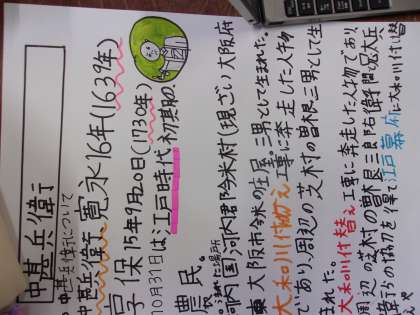 中甚兵衛
中甚兵衛について
中甚兵衛 寛永16年(1639年)
享保15年9月20日(1730年)
10月31日は江戸時代初期の
農民。
生まれた場所
河内国河内郡今米村(現ざい大阪府
東大阪市今米の庄屋三男として生まれた。
大和川付替え工事に奔走した人物
であり、周辺の芝村の曽根三男として生
まれた。
大和川付替え工事に奔走した人物であり
周辺の芝村の曽根三郎右衛門
の協力を得て江戸幕府に大和川付け替